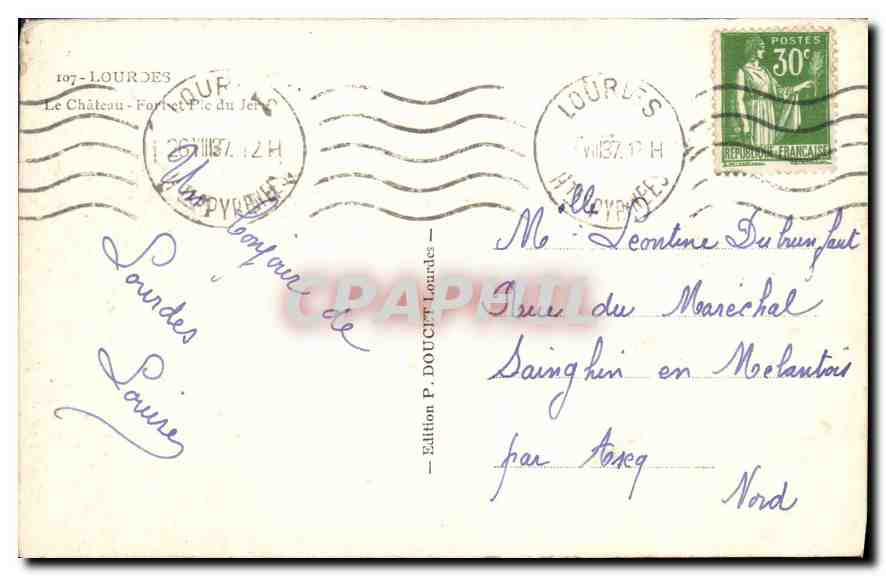 107 - LOURDES
Le Château - Fort et Pic du Jer
LOUR
26 VIII 37. 12 H
PYRÉNÉES
LOURDES
VIII 37. 12 H
HTES PYRÉNÉES
POSTES
30c
REPUBLIQUE FRANÇAISE
Un bonjour de
Lourdes
Louise
— Edition P. DOUCET Lourdes —
CPAPHIL
Mlle Leontine Dubrunfaut
Rue du Maréchal
Sainghin en Melantois
par Ascq
Nord